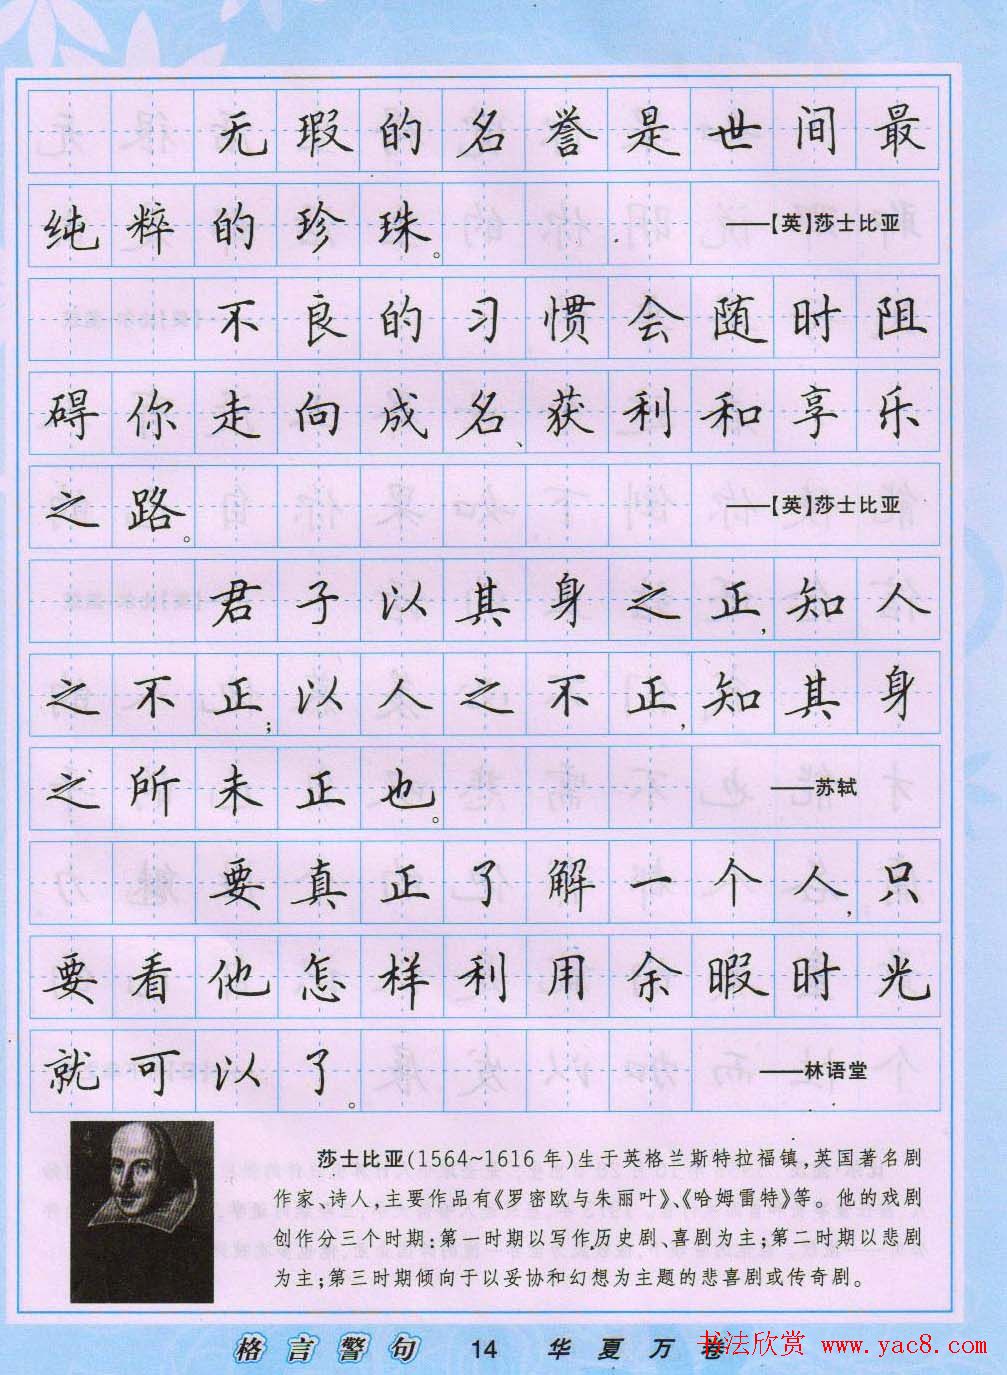 无瑕的名誉是世间最
纯粹的珍珠。 ——【英】莎士比亚
不良的习惯会随时阻
碍你走向成名、获利和享乐
之路。 ——【英】莎士比亚
君子以其身之正,知人
之不正;以人之不正,知其身
之所未正也。 ——苏轼
要真正了解一个人,只
要看他怎样利用余暇时光
就可以了。 ——林语堂
莎士比亚(1564~1616年)生于英格兰斯特拉福镇,英国著名剧
作家、诗人,主要作品有《罗密欧与朱丽叶》、《哈姆雷特》等。他的戏剧
创作分三个时期:第一时期以写作历史剧、喜剧为主;第二时期以悲剧
为主;第三时期倾向于以妥协和幻想为主题的悲喜剧或传奇剧。
格言警句 14 华夏万卷
书法欣赏 www.yac8.com